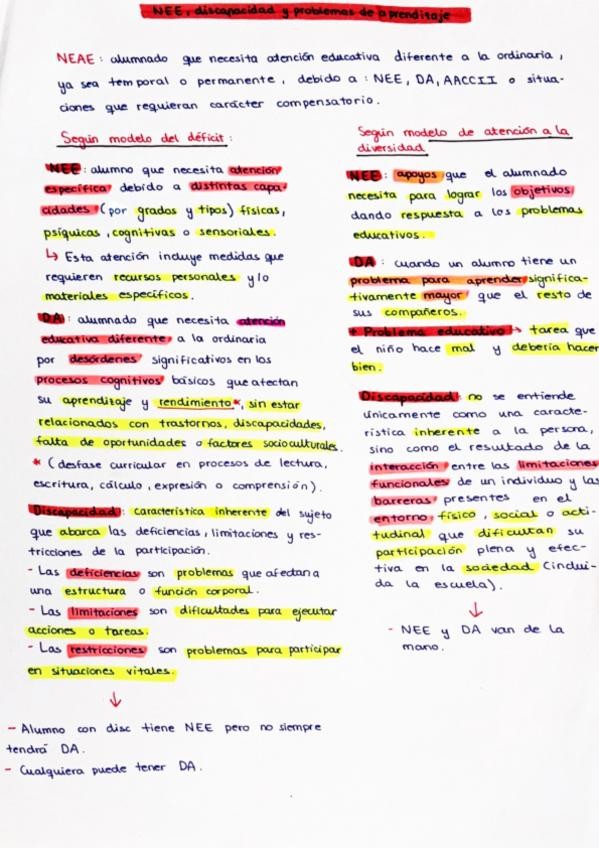 NEE, discapacidad y problemas de aprendizaje
NEAE: alumnado que necesita atención educativa diferente a la ordinaria,
ya sea temporal o permanente, debido a: NEE, DA, AACCII o situa-
ciones que requieran carácter compensatorio.
Según modelo del déficit:
NEE: alumno que necesita atención
específica debido a distintas capa-
cidades (por grados y tipos) físicas,
psíquicas, cognitivas o sensoriales.
↳ Esta atención incluye medidas que
requieren recursos personales y/o
materiales específicos.
DA: alumnado que necesita atención
educativa diferente a la ordinaria
por desórdenes significativos en los
procesos cognitivos básicos que afectan
su aprendizaje y rendimiento*, sin estar
relacionados con trastornos, discapacidades,
falta de oportunidades o factores socioculturales.
* (desfase curricular en procesos de lectura,
escritura, cálculo, expresión o comprensión).
Discapacidad: característica inherente del sujeto
que abarca las deficiencias, limitaciones y res-
tricciones de la participación.
- Las deficiencias son problemas que afectan a
una estructura o función corporal.
- Las limitaciones son dificultades para ejecutar
acciones o tareas.
- Las restricciones son problemas para participar
en situaciones vitales.
↓
- Alumno con disc tiene NEE pero no siempre
tendrá DA.
- Cualquiera puede tener DA.
Según modelo de atención a la
diversidad
NEE: apoyos que el alumnado
necesita para lograr los objetivos
dando respuesta a los problemas
educativos.
DA: cuando un alumno tiene un
problema para aprender significa-
tivamente mayor que el resto de
sus compañeros.
* Problema educativo → tarea que
el niño hace mal y debería hacer
bien.
Discapacidad: no se entiende
únicamente como una caracte-
rística inherente a la persona,
sino como el resultado de la
interacción entre las limitaciones
funcionales de un individuo y las
barreras presentes en el
entorno físico, social o acti-
tudinal que dificultan su
participación plena y efec-
tiva en la sociedad (inclui-
da la escuela).
↓
- NEE y DA van de la
mano.